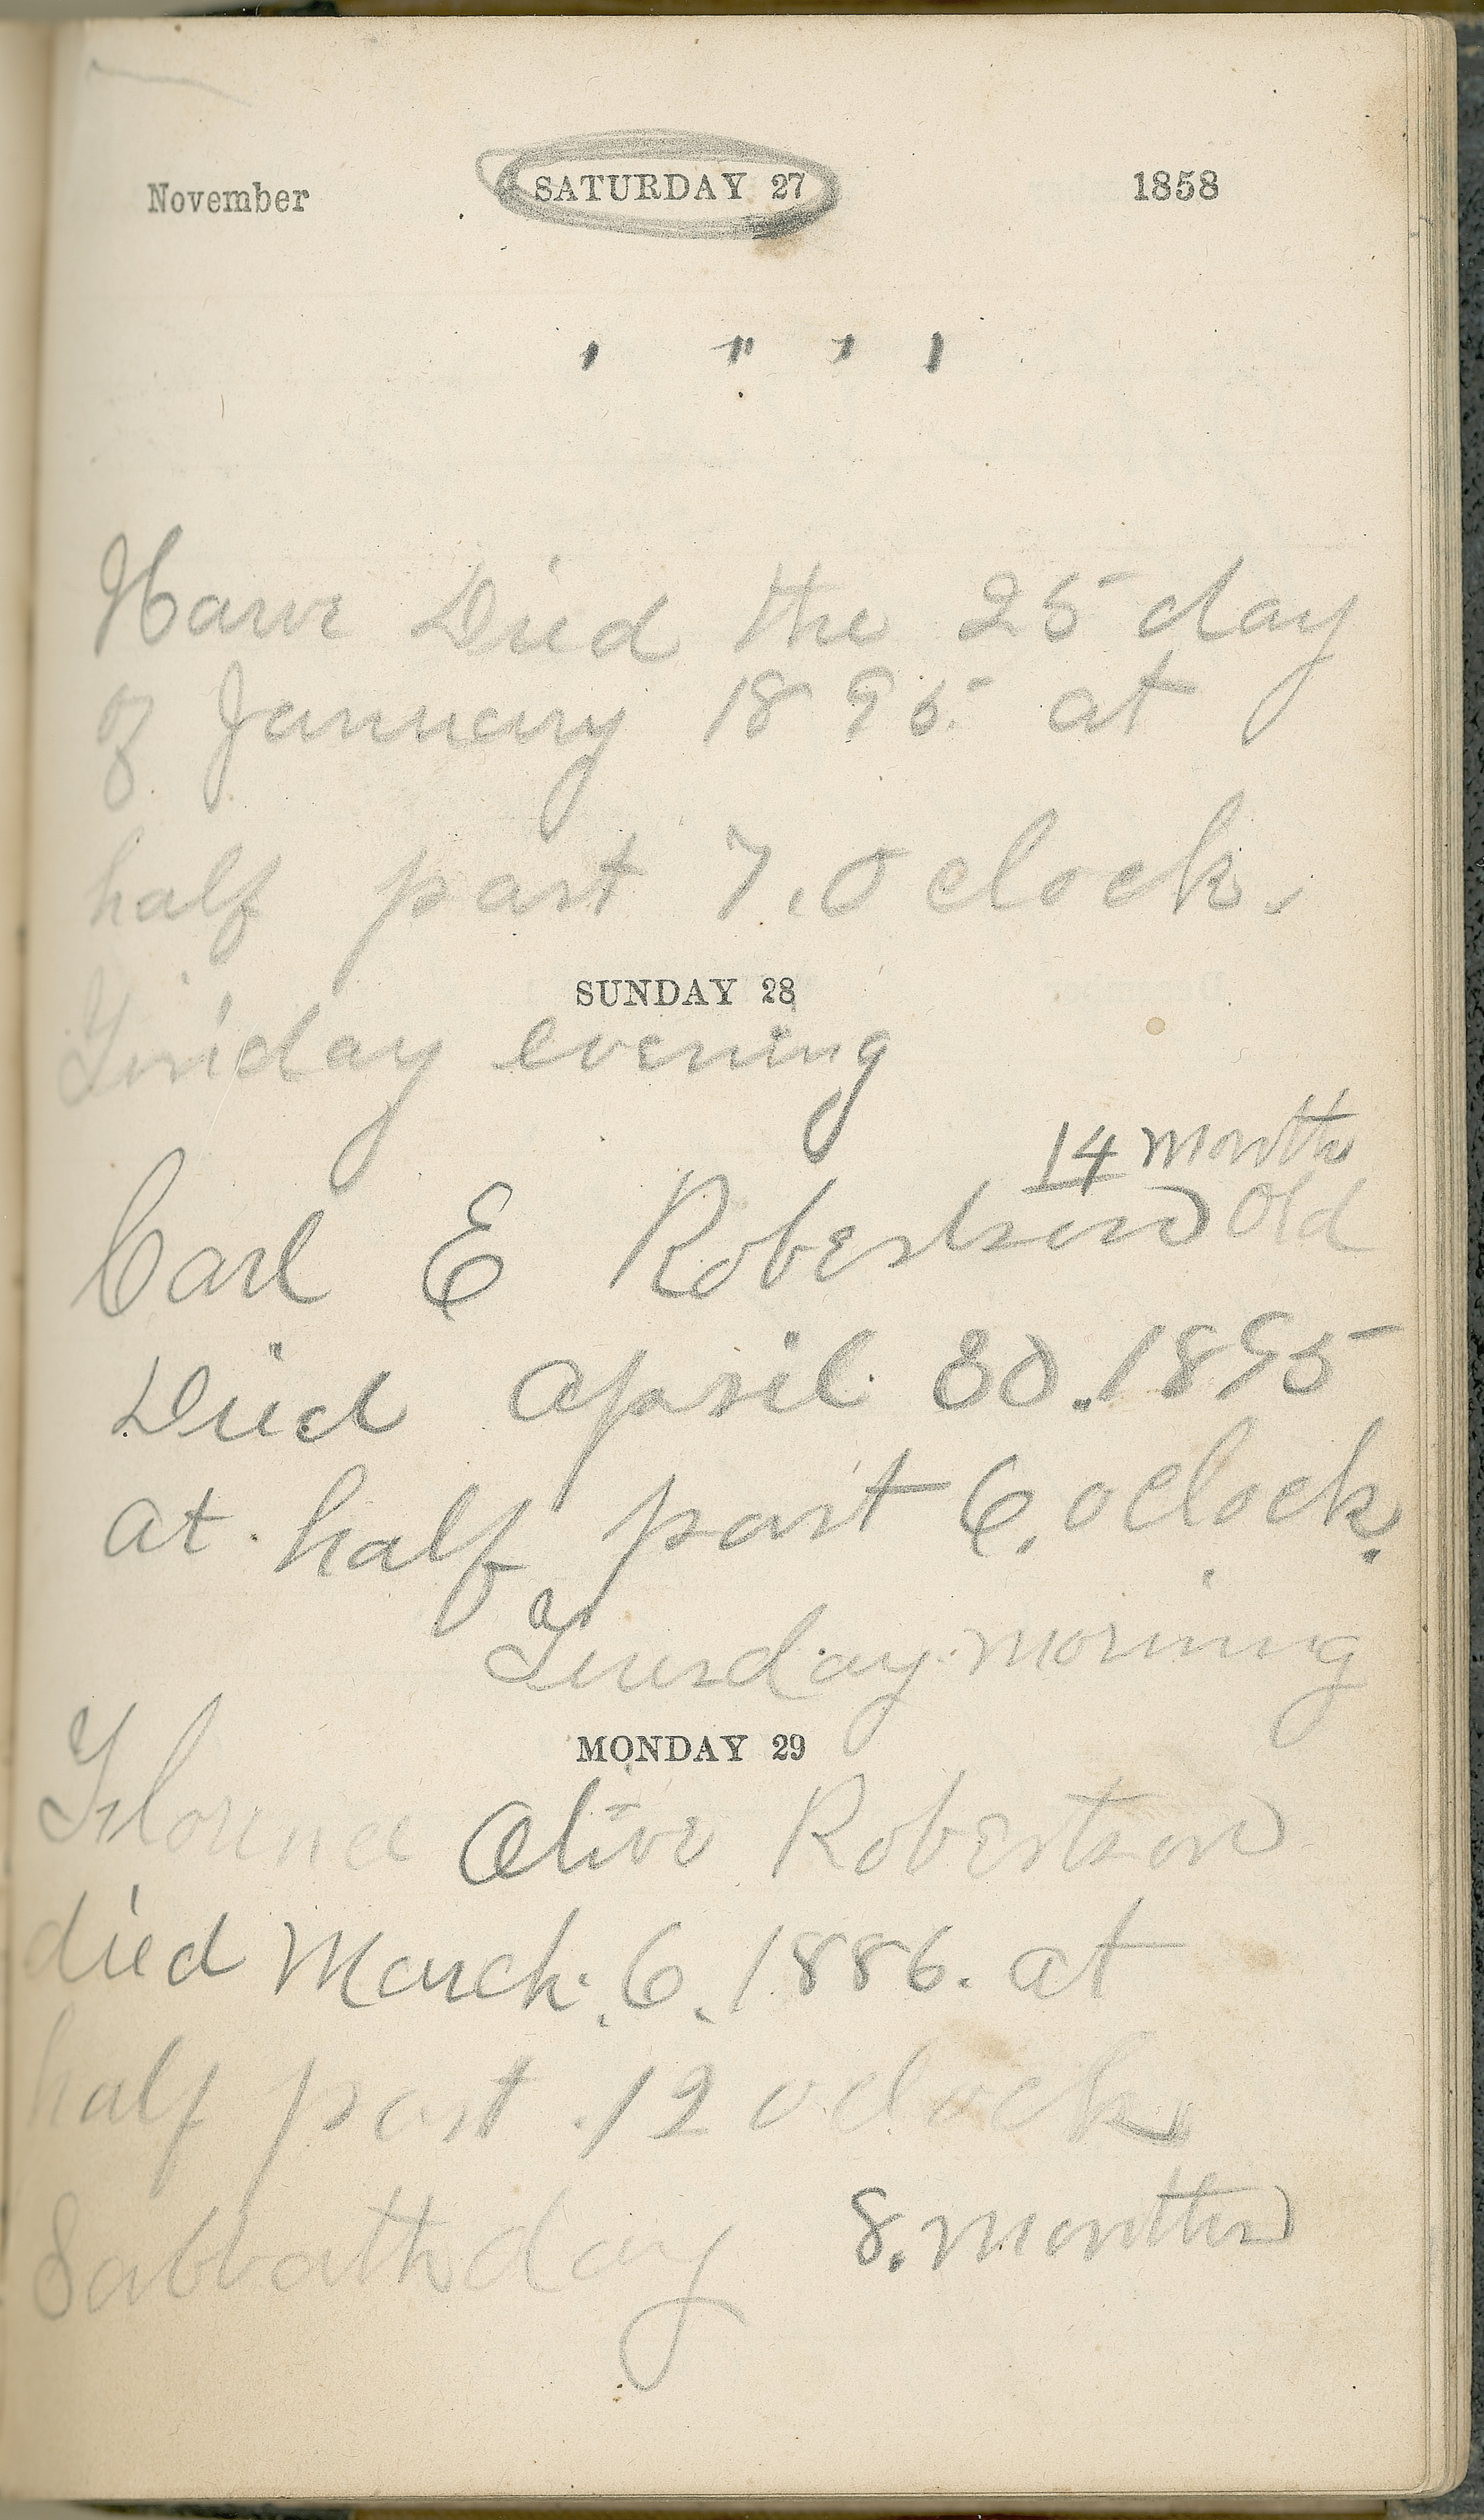 November SATURDAY 27 1858
Harve Died the 25 day
of January 1895 at
half past 7. O clock.
SUNDAY 28
Friday evening
14 months
Carl E Robertson Old
Died April 30. 1895
at half past 6. oclock.
Tuesday morning
MONDAY 29
Florence Olive Robertson
died March. 6. 1886. at
half past 12 oclock
Sabbath day 8. months